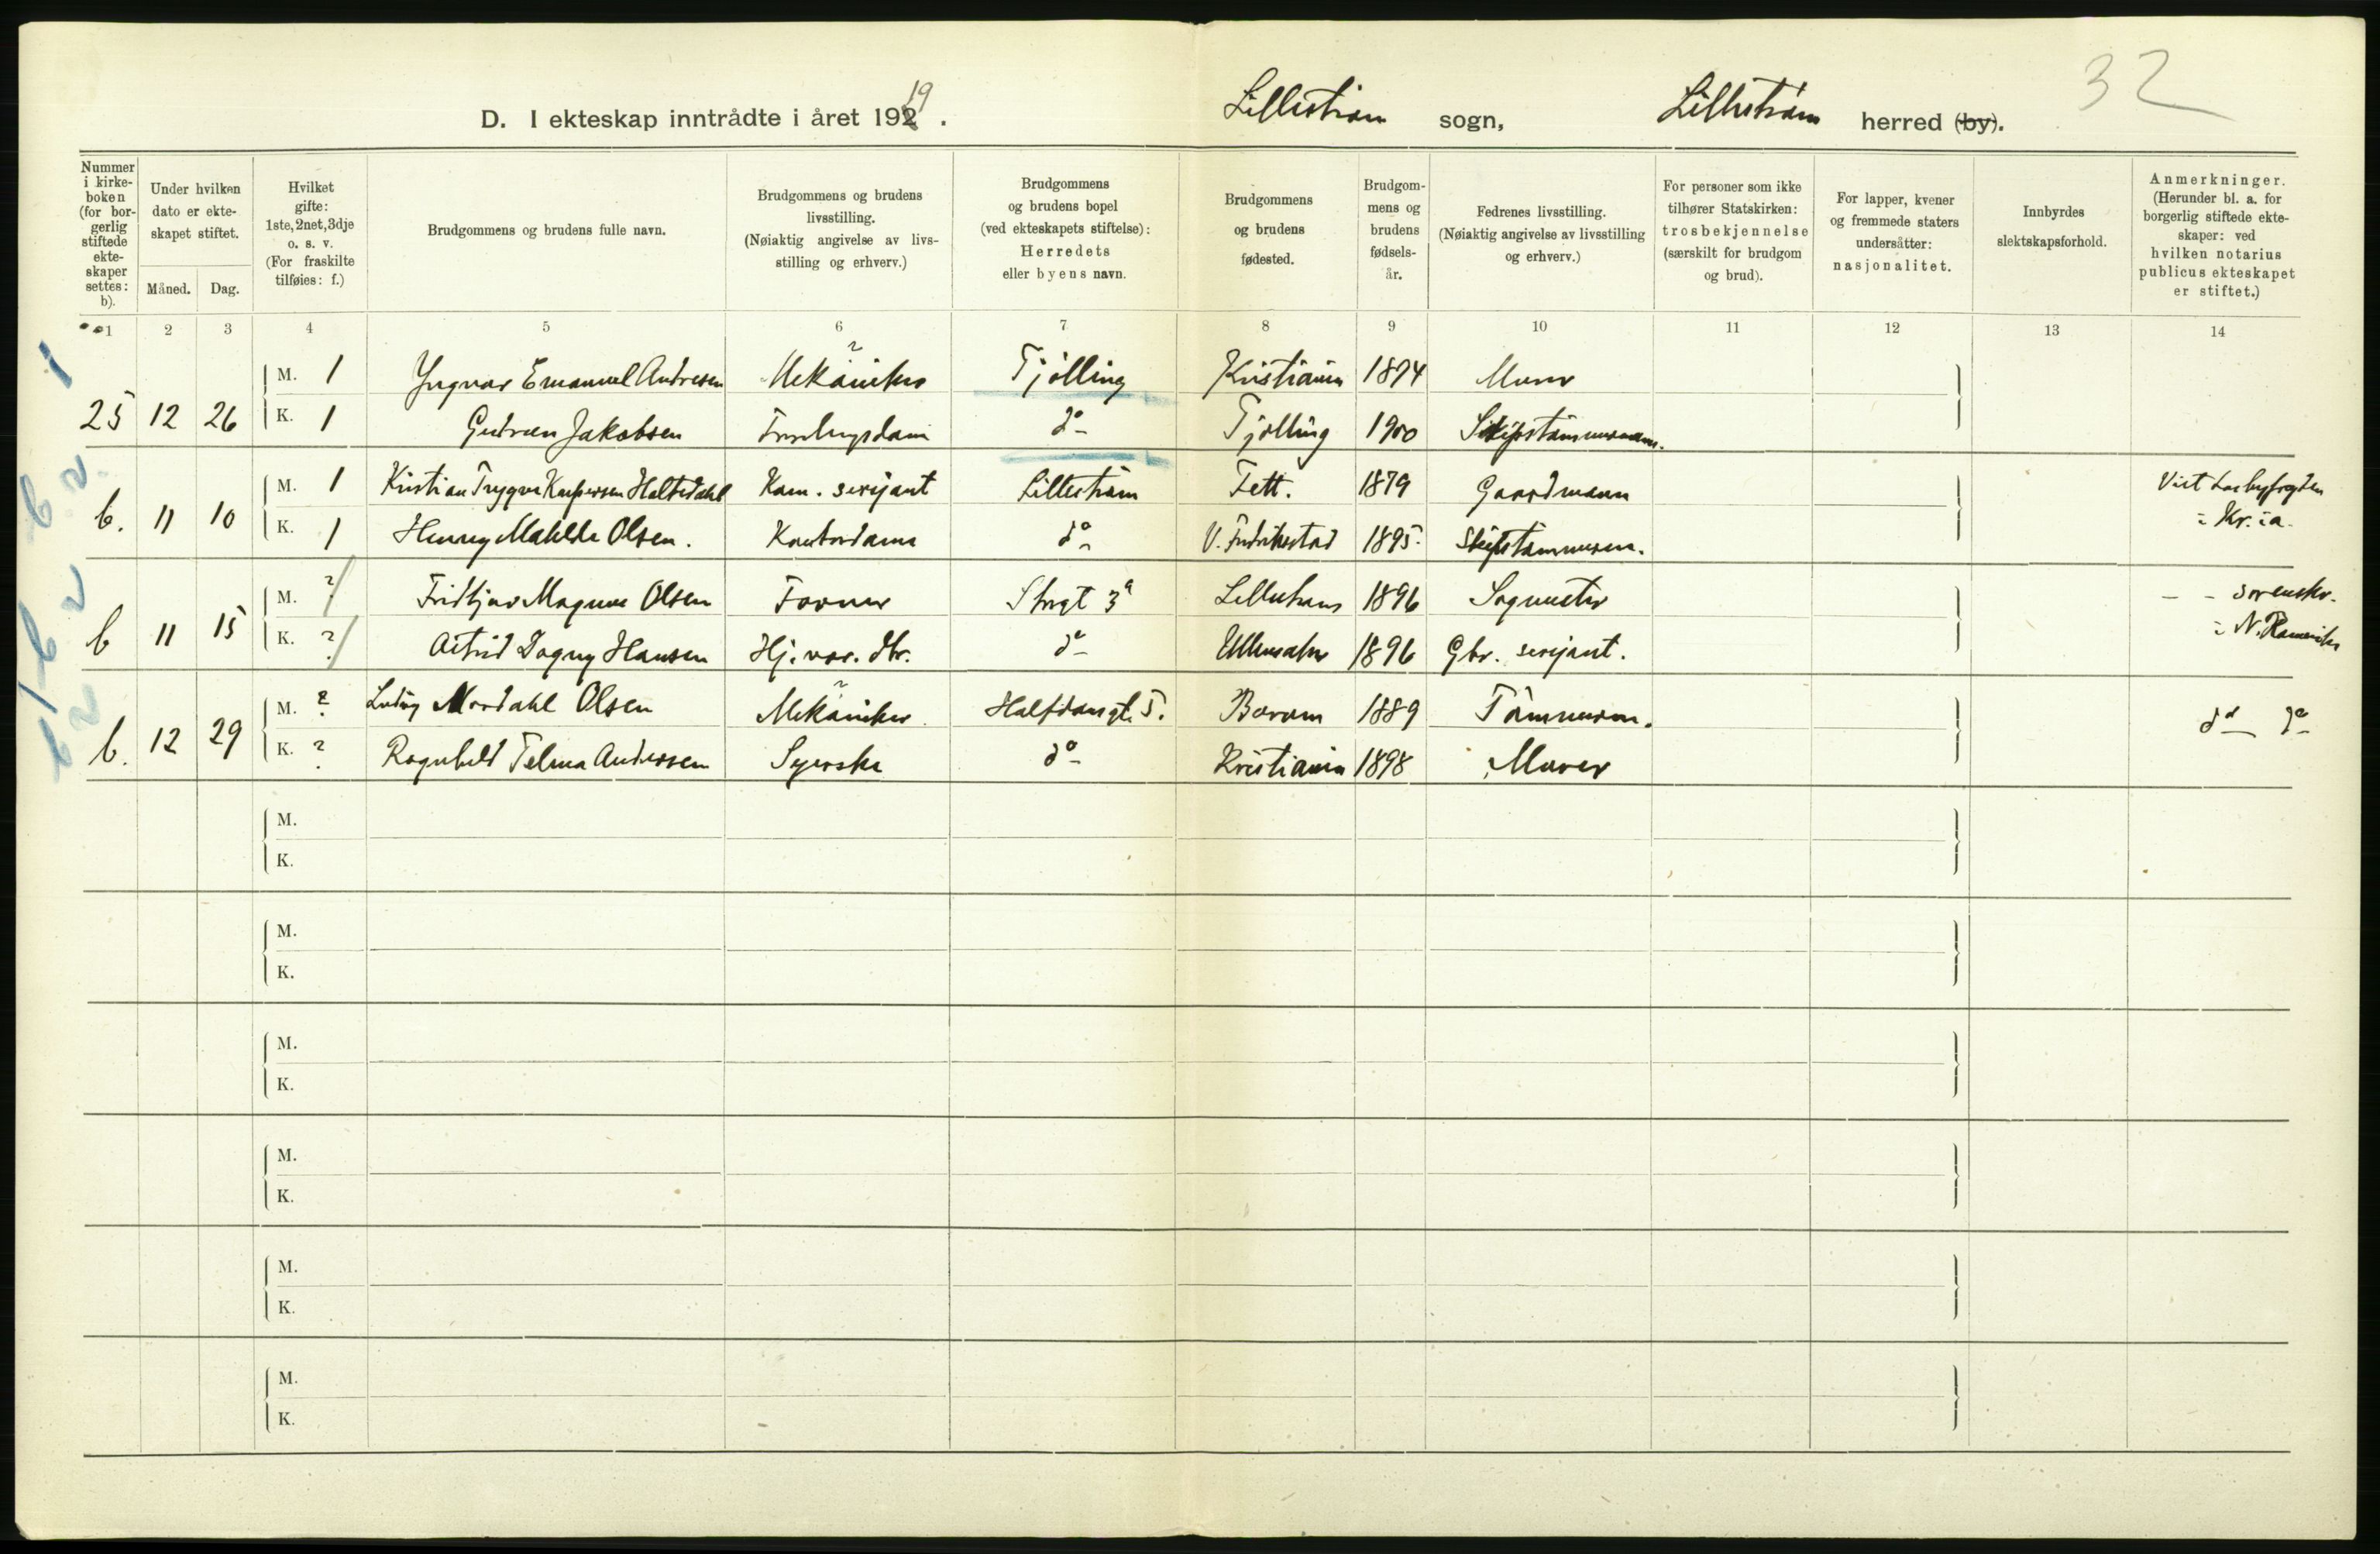 32
D. I ekteskap inntrådte i året 1919. Lillestrøm sogn, Lillestrøm herred (by).
Nummer i kirke- boken (for bor- gerlig stiftede ekte- skaper settes: b).
Under hvilken dato er ekte- skapet stiftet.
Måned. Dag.
Hvilket gifte: 1ste, 2net, 3dje o. s. v. (For fraskilte tilføies: f.)
Brudgommens og brudens fulle navn.
Brudgommens og brudens livsstilling. (Nøiaktig angivelse av livs- stilling og erhverv.)
Brudgommens og brudens bopel (ved ekteskapets stiftelse): Herredets eller byens navn.
Brudgommens og brudens fødested.
Brudgom- mens og brudens fødsels- år.
Fedrenes livsstilling. (Nøiaktig angivelse av livsstilling og erhverv.)
For personer som ikke tilhører Statskirken: trosbekjennelse (særskilt for brudgom og brud).
For lapper, kvener og fremmede staters undersåtter: nasjonalitet.
Innbyrdes slektskapsforhold.
Anmerkninger. (Herunder bl. a. for borgerlig stiftede ekte- skaper: ved hvilken notarius publicus ekteskapet er stiftet.)
1 2 3 4 5 6 7 8 9 10 11 12 13 14
M. 1 Yngvar Emanuel Andresen Mekaniker Tjølling Kristiania 1874 Murer
25 12 26 K. 1 Gudrun Jakobsen do Tjølling 1900 Skipstømmermann.
M. 1 Kristian Trygve Kaspersen Halfsdahl Kom. serjant Lillestrøm Fett. 1879 Gaardmann
b. 11 10 K. 1 Henny Mathilde Olsen. Kontordame do V. Fredrikstad 1895 Skipstømmerm. Kr.ia.
M. ? Fridtjov Magnus Olsen Former Strgt 3a Lillestrøm 1896 Sagmester - - sorenskr.
b 11 15 K. ? Astrid Dagny Hansen do Ullensaker 1896 Gbr. serjant. i N. Romerike
M. ? Ludvig Mordahl Olsen Mekaniker Halfdansgt. 5. Bærum 1889 Tømmerm. do do
b. 12 29 K. ? Ragnhild Telma Andersen Syerske do Kristiania 1898 Murer
M.
K.
M.
K.
M.
K.
M.
K.
M.
K.
M.
K.